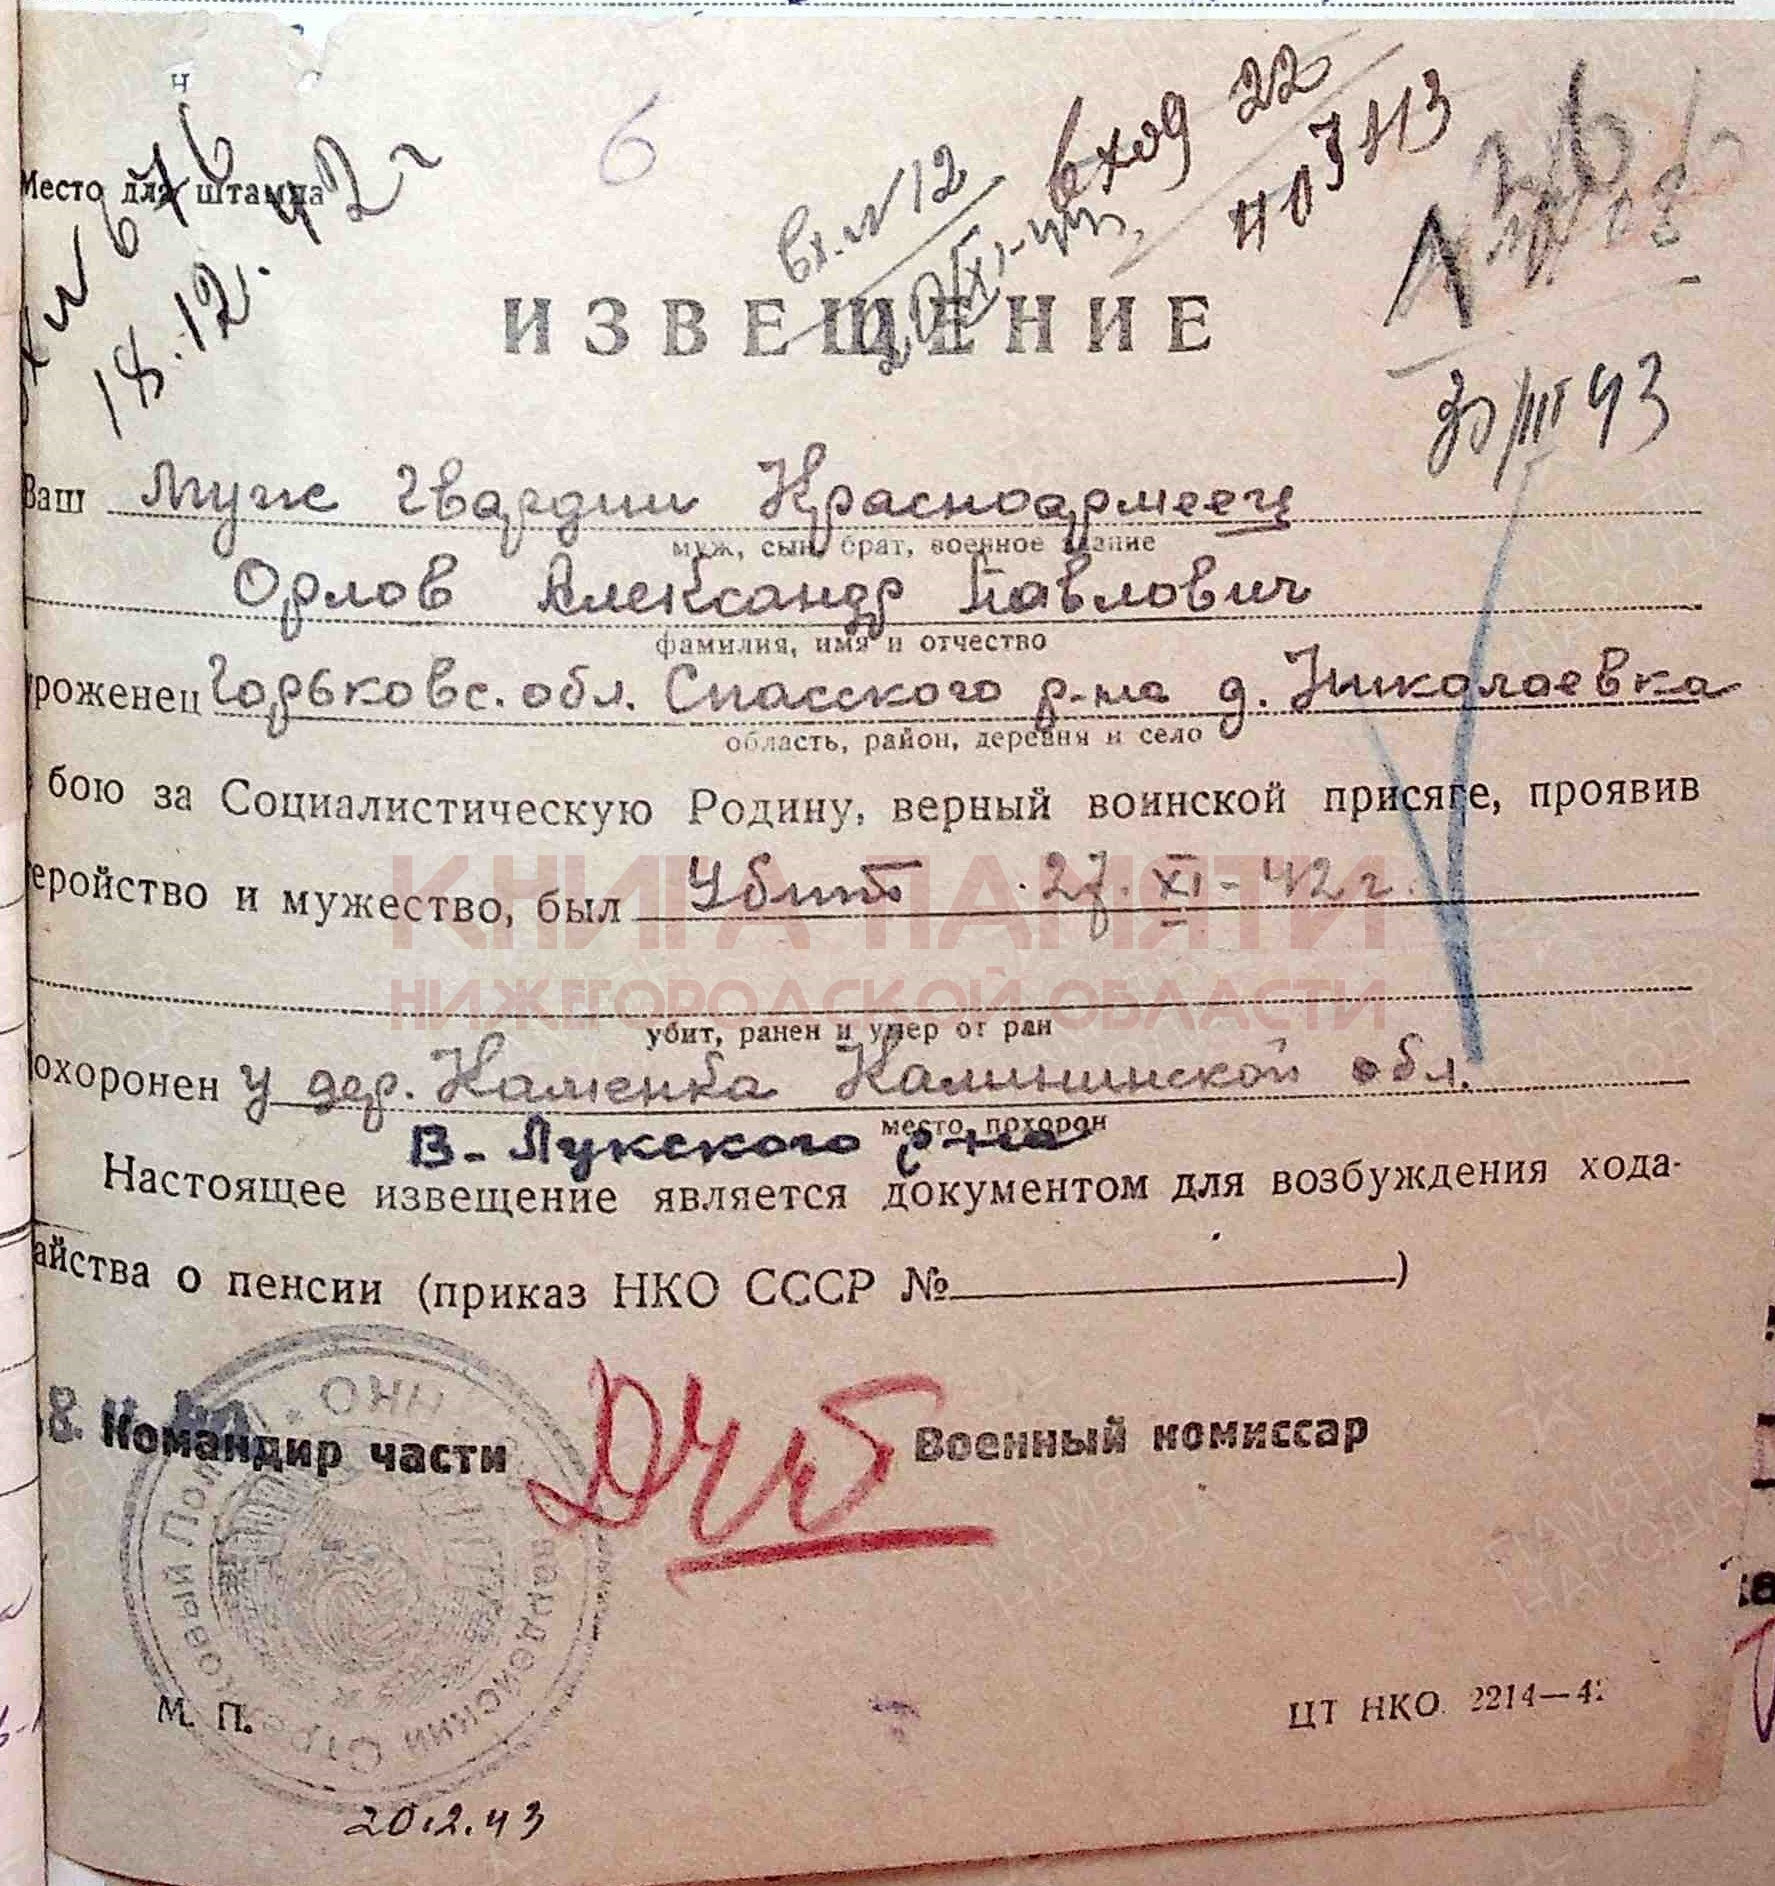 6
Место для штампа
№ 676
18.12.42 г
вх. № 12
вход 22
30/III 43
ИЗВЕЩЕНИЕ
Ваш муж гвардии Красноармеец
муж, сын, брат, военное звание
Орлов Александр Павлович
фамилия, имя и отчество
уроженец Горьковс. обл. Спасского р-на д. Николаевка
область, район, деревня и село
бою за Социалистическую Родину, верный воинской присяге, проявив
геройство и мужество, был Убит 27.XI-42 г.
КНИГА ПАМЯТИ
НИЖЕГОРОДСКОЙ ОБЛАСТИ
убит, ранен и умер от ран
похоронен у дер. Каменка Калининской обл.
место похорон
В-Лукского р-на
Настоящее извещение является документом для возбуждения хода-
айства о пенсии (приказ НКО СССР №            )
Командир части Военный комиссар
НКО Гвардейский Стрелковый
М. П.
ЦТ НКО. 2214—42
20.2.43
ПАМЯТЬ НАРОДА